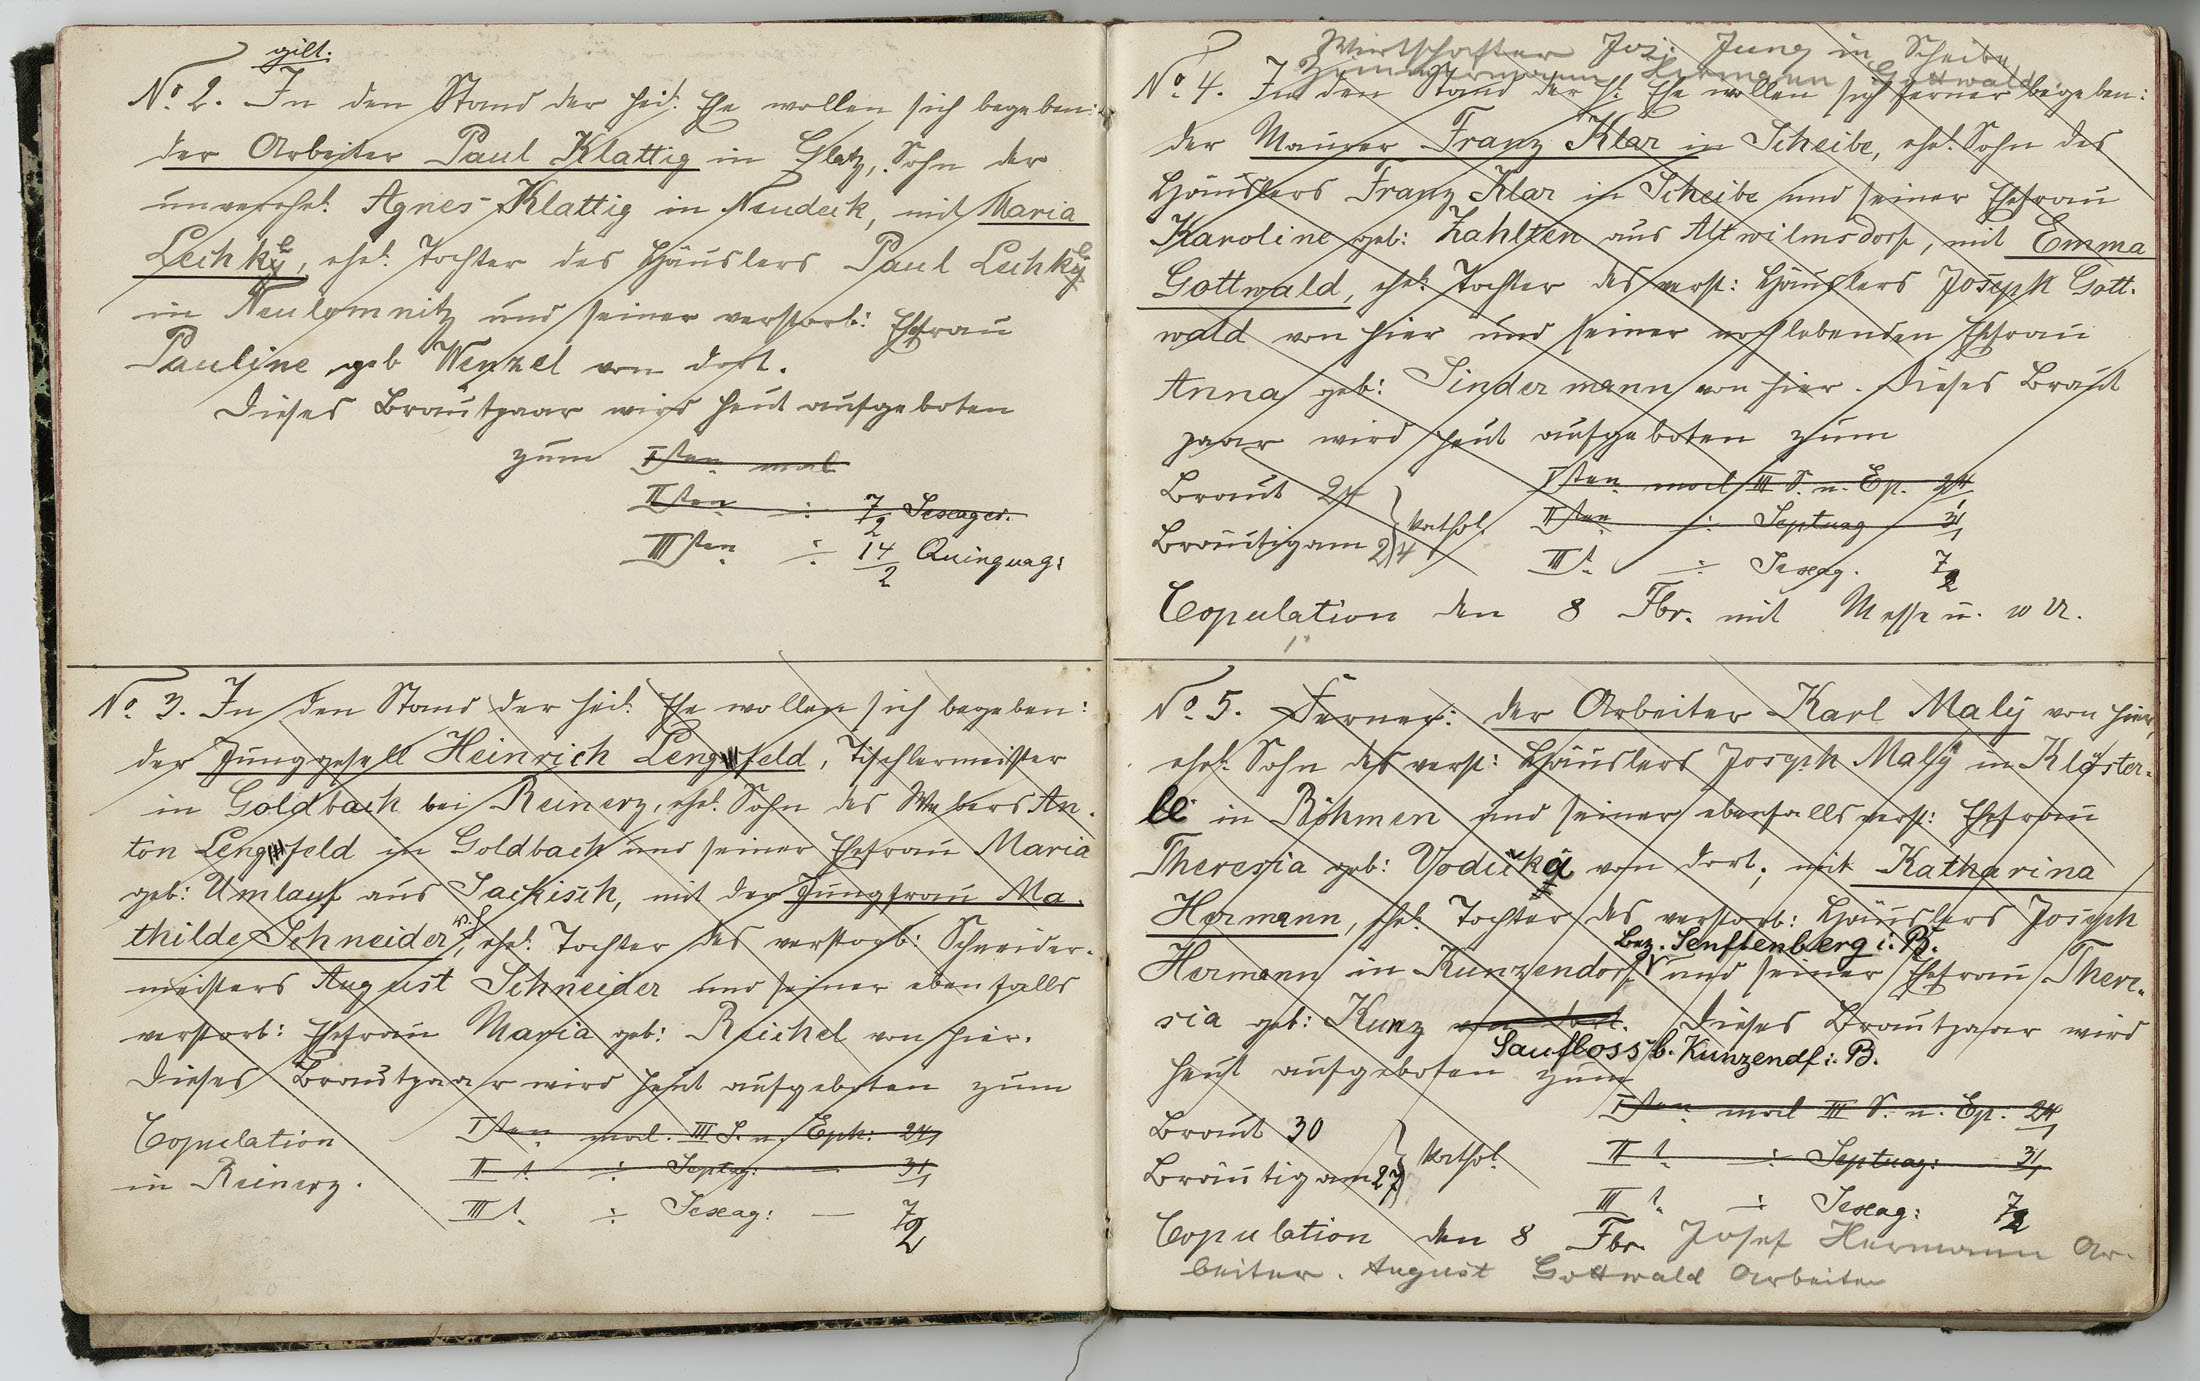 gilt.
No. 2. In den Stand der heil: Ehe wollen sich begeben:
der Arbeiter Paul Klattig in Glatz, Sohn der
unverehel: Agnes Klattig in Neudeck, mit Maria
, ehel: Tochter des Häuslers Paul
in Neulomnitz und seiner verstorb: Ehefrau
Pauline geb Wenzel von dort.
Dieses Brautpaar wird heut aufgeboten
zum Isten mal
IIsten ÷ 7/2 Sexages.
IIIsten ÷ 14/2 Quinquag:
No. 3. In den Stand der heil: Ehe wollen sich begeben:
der Junggesell Heinrich Lengfeld, Tischlermeister
in Goldbach bei Reinerz, ehel: Sohn des Webers An-
ton Lengfeld in Goldbach und seiner Ehefrau Maria
geb: Umlauf aus Sackisch, mit der Jungfrau Ma-
thilde Schneider, ehel: Tochter des verstorb: Schneider-
meisters August Schneider und seiner ebenfalls
verstorb: Ehefrau Maria geb: Reichel von hier.
Dieses Brautpaar wird heut aufgeboten zum
Copulation
in Reinerz.
Isten mal. III S. n. Eph: 24/1
II t. ÷ Septuag: — 31/1
III t. ÷ Sexag: — 7/2
Wirtschafter Jos: Jung in Scheibe,
Zimmermann Hermann Gottwald
No. 4. In den Stand der h: Ehe wollen sich ferner begeben:
der Maurer Franz Klar in Scheibe, ehel: Sohn des
Häuslers Franz Klar in Scheibe und seiner Ehefrau
Karoline geb: Zahlten aus Altwilmsdorf, mit Emma
Gottwald, ehel: Tochter des verst: Häuslers Joseph Gott-
wald von hier und seiner noch lebenden Ehefrau
Anna geb: Sindermann von hier. Dieses Braut
paar wird heut aufgeboten zum
Braut 24
Bräutigam 24 } kathol.
Isten mal III S. n. Ep. 24/1
IIsten ÷ Septuag 31/1
III t. ÷ Sexag. 7/2
Copulation den 8 Fbr. mit Messe u.
No. 5. Ferner: der Arbeiter Karl Malý von hier,
ehel: Sohn des verst: Häuslers Joseph Malý in Klöster-
le in Böhmen und seiner ebenfalls verst: Ehefrau
Theresia geb: von dort, mit Katharina
Hermann, ehel: Tochter des verstorb: Häuslers Joseph
Bez. Senftenberg i. B.
Hermann in Kunzendorf und seiner Ehefrau There-
sia geb: Kunz von dort. Dieses Brautpaar wird
Saufloss b. Kunzendf i. B.
heut aufgeboten zum
Braut 30
Bräutigam 27 } kathol.
Isten mal III S. n. Ep. 24/1
II t. ÷ Septuag: 31/1
III t. ÷ Sexag: 7/2
Copulation den 8 Fbr. Josef Hermann Ar-
beiter. August Gottwald Arbeiter